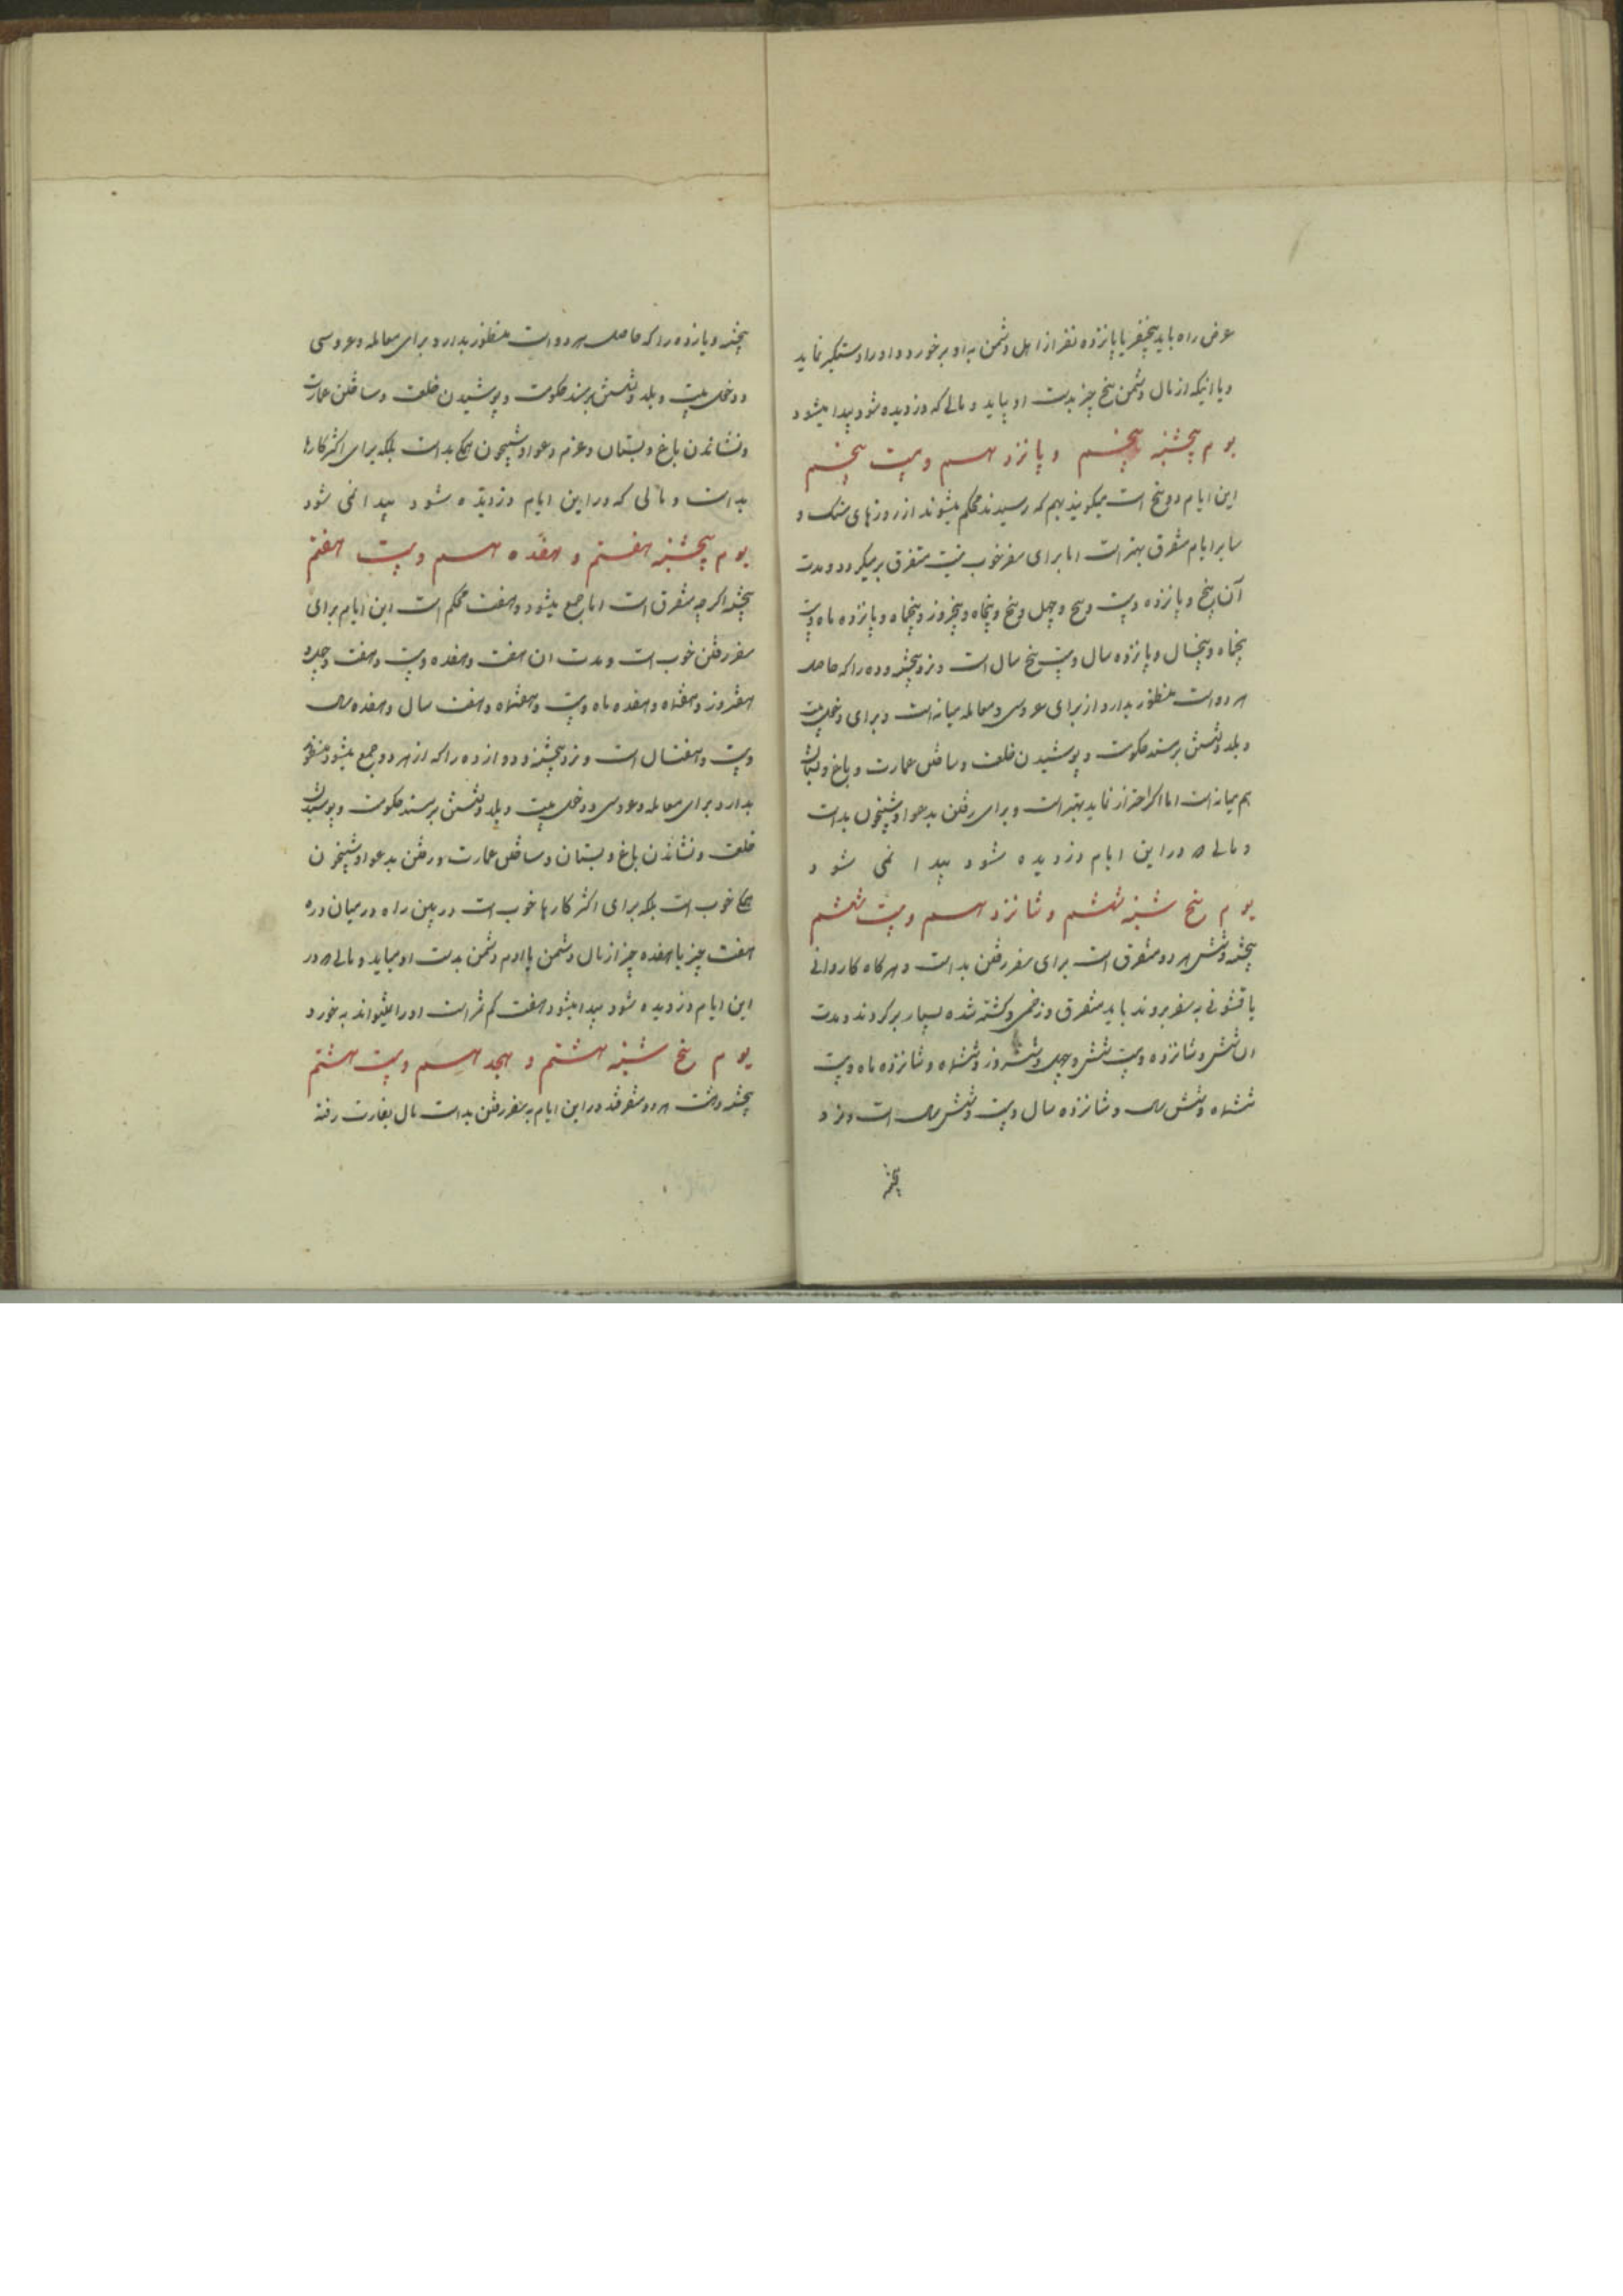 عرض راه باید پنجنفر یا پانزده نفر از اهل دشمن به او بر خورد و او را دستگیر نماید
و یا اینکه از مال دشمن پنج چیز بدست او بیاید و مالی که دزدیده شود پیدا میشود
یوم پنجشنبه پنجم و پانزدهم و بیست پنجم
این ایام دو پنج است میگویند بهم که رسیدند محکم میشوند از روزهای سبک و
سایر ایام متفرق بهتر است اما برای سفر خوب نیست متفرق بر میگردد و مدت
آن پنج و پانزده و بیست و پنج و چهل و پنج و پنجاه و پنجروز و پنجماه و پانزده ماه و بیست
پنجماه و پنجسال و پانزده سال و بیست پنج سال است و نزد پنجشنبه و ده را که حاصل
هر دو است منظور بدارد از برای عروسی و معامله میانه است و برای دخل بیت
و بلد و نشستن بر مسند حکومت و پوشیدن خلعت و ساختن عمارت و باغ و بستان
هم میانه است اما اگر احتراز نماید بهتر است و برای رفتن بدعوا و شبیخون بد است
و مالی که در این ایام دزدیده شود پیدا نمی شود
یوم پنج شنبه ششم و شانزدهم و بیست ششم
پنجشنبه و شش هر دو متفرق است برای سفر رفتن بد است و هر گاه کاروانی
یا قشونی به سفر بروند باید متفرق و زخمی و کشته شده بسیار برگردند و مدت
ان شش و شانزده و بیست شش و چهل و ششروز و ششماه و شانزده ماه و بیست
ششماه و شش سال و شانزده سال و بیست و شش سال است و نزد
پنجشنبه
پنجشنبه و یازده را که حاصل هر دو است منظور بدارد و برای معامله و عروسی
و دخل بیت و بلد و نشستن بر مسند حکومت و پوشیدن خلعت و ساختن عمارت
و نشاندن باغ و بستان و عزم دعوا و شبیخون همگی بد است بلکه برای اکثر کارها
بد است و مالی که در این ایام دزدیده شود پیدا نمی شود
یوم پنجشنبه هفتم و هفدهم و بیست هفتم
پنجشنبه اگر چه متفرق است اما جمع میشود و هفت محکم است این ایام برای
سفر رفتن خوب است و مدت ان هفت و هفده و بیست و هفت و چهل و
هفتروز و هفتماه و هفده ماه و بیست و هفتماه و هفت سال و هفده سال
و بیست و هفتسال است و نزد پنجشنبه و دوازده را که از هر دو جمع میشود منظور
بدارد برای معامله و عروسی و دخل بیت و بلد و نشستن بر مسند حکومت و پوشیدن
خلعت و نشاندن باغ و بستان و ساختن عمارت و رفتن بدعوا و شبیخون
همگی خوب است بلکه برای اکثر کارها خوب است در بین راه در میان دره
هفت چیز یا هفده چیز از مال دشمن یا ادم دشمن بدست او میاید و مالی که در
این ایام دزدیده شود پیدا میشود هفت کم شر است او را میتواند به خورد
یوم پنج شنبه هشتم و هجدهم و بیست هشتم
پنجشنبه و هشت هر دو متفرقند در این ایام به سفر رفتن بد است مال بغارت رفته